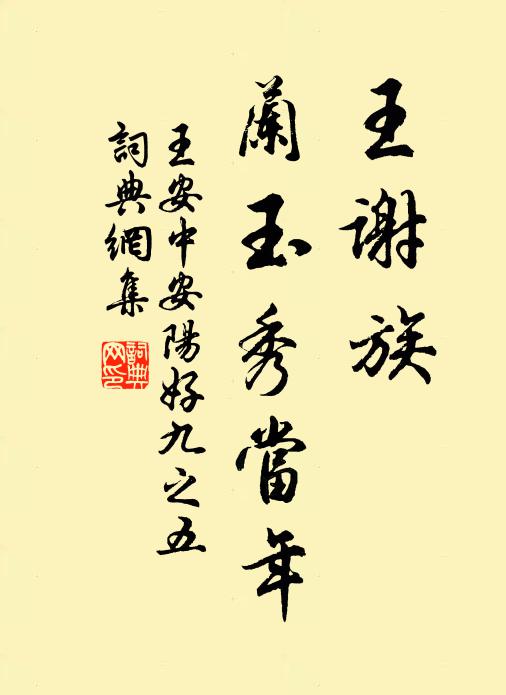 王谢族
蘭玉秀當年
王安中安陽好九之五
詞典網集
詞典网印